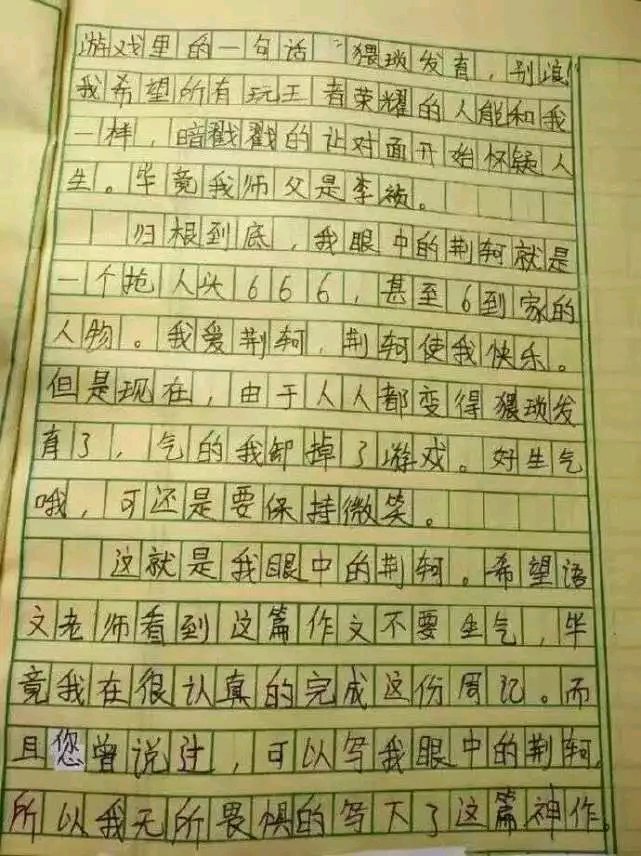 游戏里的一句话:“猥琐发育,别浪!”
我希望所有玩王者荣耀的人能和我
一样,暗戳戳的让对面开始怀疑人
生。毕竟我师父是李祯。
归根到底,我眼中的荆轲就是
一个抢人头666,甚至6到家的
人物。我爱荆轲,荆轲使我快乐。
但是现在,由于人人都变得猥琐发
育了,气的我卸掉了游戏。好生气
哦,可还是要保持微笑。
这就是我眼中的荆轲。希望语
文老师看到这篇作文不要生气,毕
竟我在很认真的完成这份周记。而
且您曾说过,可以写我眼中的荆轲,
所以我无所畏惧的写下了这篇神作。